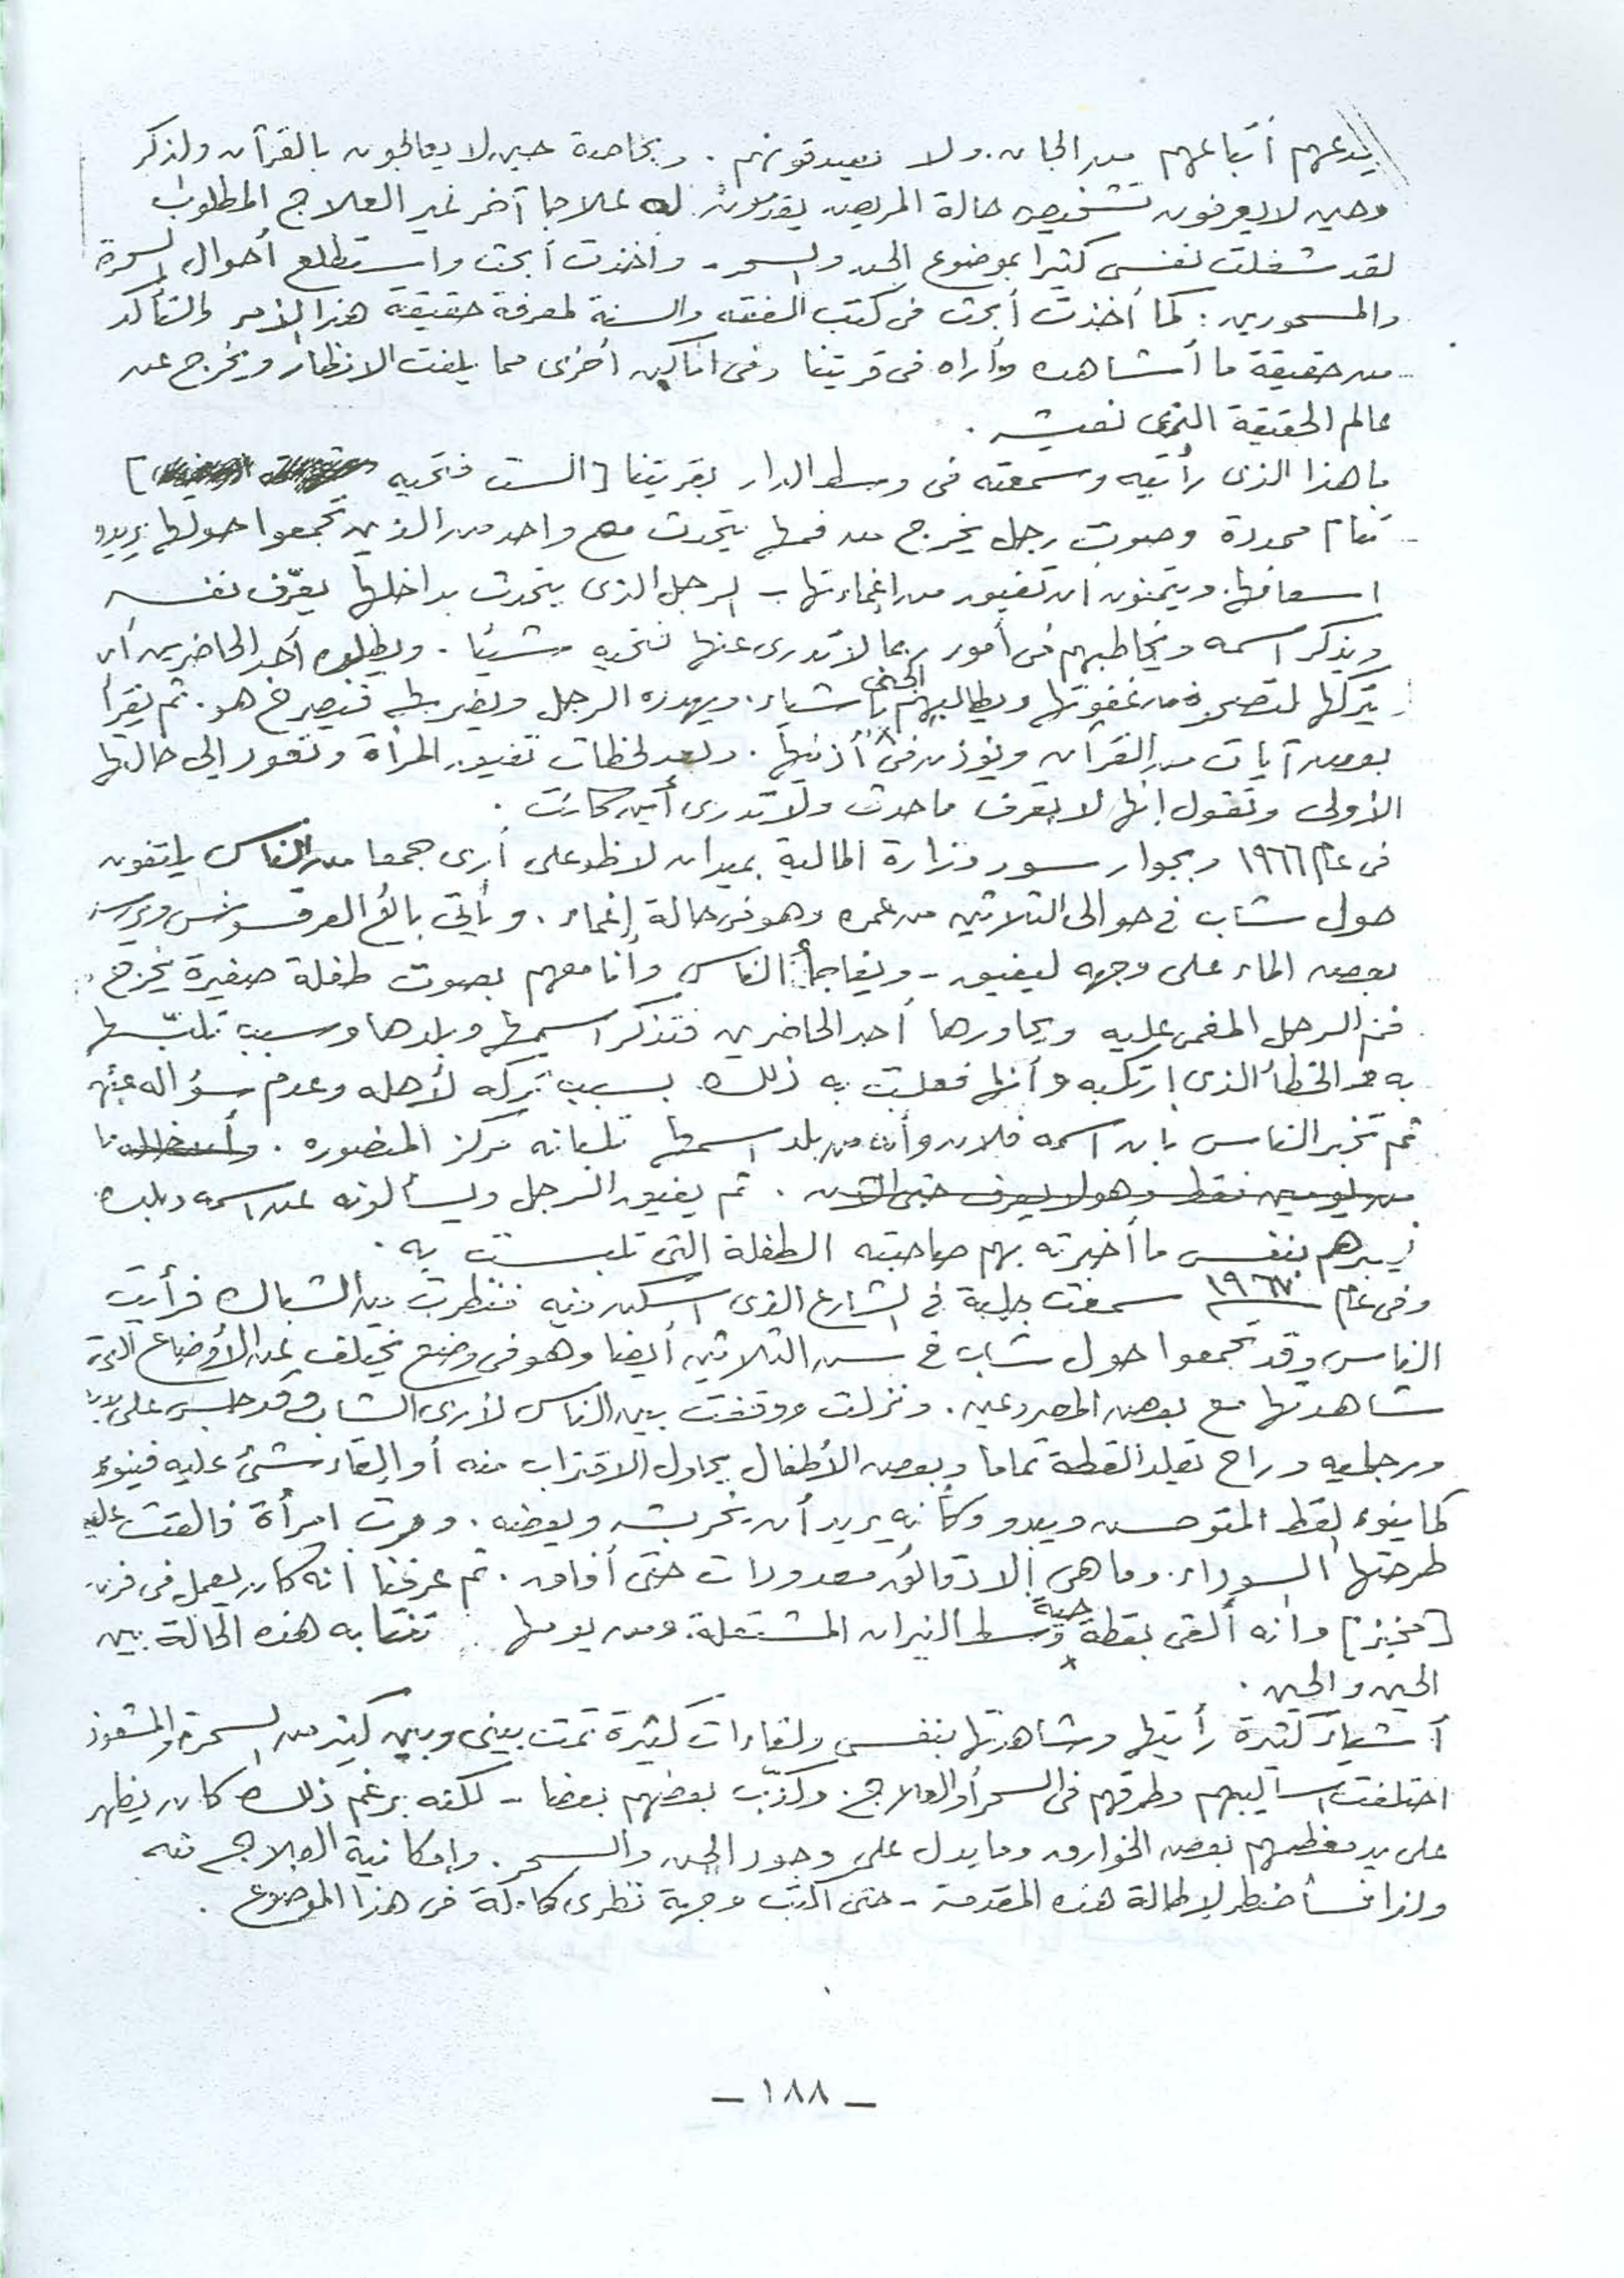 يدعهم أتباعهم من الجان. ولا يصدقونهم. وبخاصة حين لا يعالجون بالقرآن ولذكر
وحين لا يعرفون تشخيص حالة المريض يقدمون له علاجا آخر غير العلاج المطلوب
لقد شغلت نفسى كثيرا بموضوع الجن والسحر - وأخذت أبحث واستطلع أحوال السحرة
والمسحورين: كما أخذت أبحث فى كتب الفقه والسنة لمعرفة حقيقة هذا الأمر والتأكد
من حقيقة ما أشاهده وأراه فى قريتنا وفى اماكن أخرى مما يلفت الانظار ويخرج عن
عالم الحقيقة الذى نعيشه.
ما هذا الذى رأيته وسمعته فى وسط الدار بقريتنا [الست فتحيه ]
تنام ممددة وصوت رجل يخرج من فمها يتحدث مع واحد من الذين تجمعوا حولها يريدو
اسعافها. ويتمنون ان تفيق من إغماءتها - الرجل الذى يتحدث بداخلها يعرّف نفسه
ويذكر اسمه ويخاطبهم فى أمور ربما لا تدرى عنها فتحيه شيئا. ويطلب أحد الحاضرين أن
يتركها لتصحو من غفوتها ويطالبهم الجنى بأشياء. ويهدده الرجل ويضربه فيصرخ هو. ثم يقرأ
بعض آيات من القرآن ويؤذن فى أذنيها. وبعد لحظات تفيق المرأة وتعود إلى حالتها
الأولى وتقول إنها لا تعرف ما حدث ولا تدرى أين كانت.
فى عام ١٩٦٦ وبجوار سور وزارة المالية بميدان لاظوغلى أرى جمعا من الناس يلتفون
حول شاب فى حوالى الثلاثين من عمره وهو فى حالة إغماء. ويأتى بائع العرقسوس ويرش
بعض الماء على وجهه ليفيق - ويفاجأ الناس وأنا معهم بصوت طفلة صغيرة يخرج
فم الرجل المغمى عليه ويحاورها أحد الحاضرين فتذكر اسمها وبلدها وسبب تلبّسها
به هو الخطأ الذى ارتكبه وأنها فعلت به ذلك بسبب تركه لأهله وعدم سؤاله عنهم
ثم تخبر الناس بان اسمه فلان وأنه من بلد اسمها تلبانه مركز المنصوره.
من يومين فقط وهو لا يعرف حتى الآن. ثم يفيق الرجل ويسألونه عن اسمه وبلده
بنفس ما أخبرته بهم صاحبته الطفلة التى تلبست به.
وفى عام ١٩٦٧ سمعت جلبة فى الشارع الذى اسكن فيه فنظرت من الشباك فرأيت
الناس وقد تجمعوا حول شاب فى سن الثلاثين أيضا وهو فى وضع يختلف عن الأوضاع التى
شاهدتها مع بعض المصروعين. ونزلت ووقفت بين الناس لأرى الشاب وقد جلس على
ورجليه وراح يقلد القطة تماما وبعض الأطفال يحاول الاقتراب منه أو إلقاء شئ عليه فينوء
كما ينوء القط المتوحش ويبدو وكأنه يريد أن يخربشه ويعضه. ومرت امرأة فألقت عليه
طرحتها السوداء. وما هى إلا دقائق معدودات حتى أفاق. ثم عرفنا انه كان يعمل فى فرن
[مخبز] وانه ألقى بقطة حية وسط النيران المشتعلة. ومن يومها تنتابه هذه الحالة بين
الحين والحين.
أشياء كثيرة رأيتها وشاهدتها بنفسى ولقاءات كثيرة تمت بينى وبين كثير من السحرة والمشعوذ
اختلفت اساليبهم وطرقهم فى السحر أو العلاج. وكذّب بعضهم بعضا - لكنه برغم ذلك كان يظهر
على يد معظمهم بعض الخوارق وما يدل على وجود الجن والسحر. وإمكانية العلاج منه
ولذا فسأضطر لإطالة هذه المقدمة - حتى أكتب وجهة نظرى كاملة فى هذا الموضوع.
- ١٨٨ -